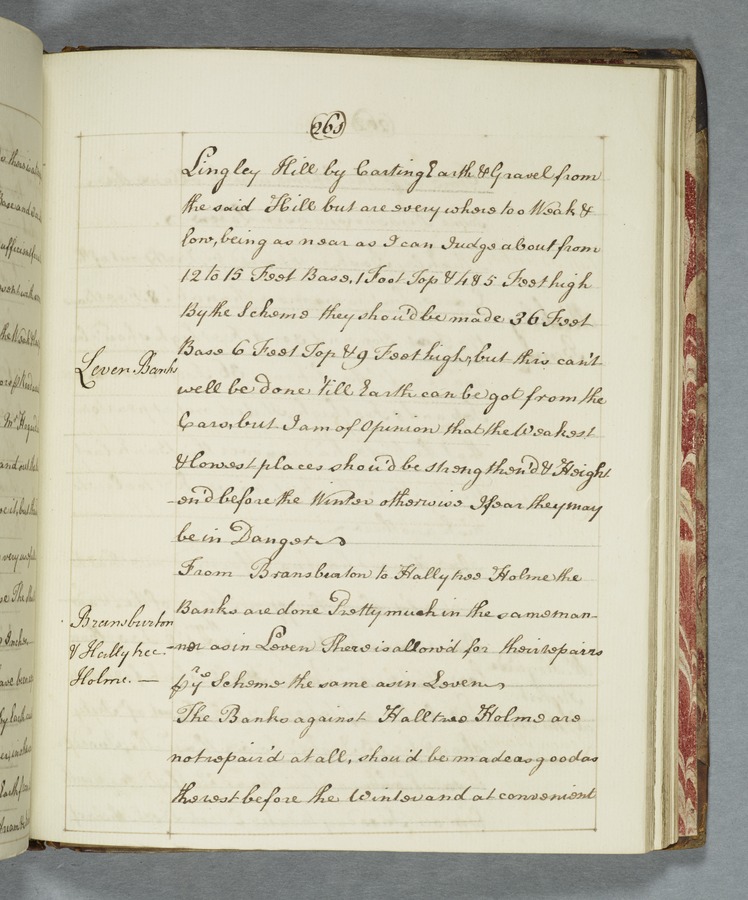 263
Lingley Hill by Carting Earth & Gravel from
the said Hill but are every where too Weak &
low, being as near as I can Judge about from
12 to 15 Feet Base, 1 Foot Top & 4 & 5 Feet high
By the Scheme they shou'd be made 36 Feet
Leven Banks
Base 6 Feet Top & 9 Feet high, but this can't
well be done 'till Earth can be got from the
Cars, but I am of Opinion that the Weakest
& lowest places shou'd be strengthen'd & Height
-en'd before the Winter otherwise I fear they may
be in Danger
From Bransbearton to Hallytree Holme the
Bransburton
& Hallytree
Holme. —
Banks are done Pretty much in the same man-
-ner as in Leven There is allow'd for their repairs
pr ye Scheme the same as in Leven
The Banks against Halltree Holme are
not repair'd at all, shou'd be made as good as
the rest before the Winter and at convenient